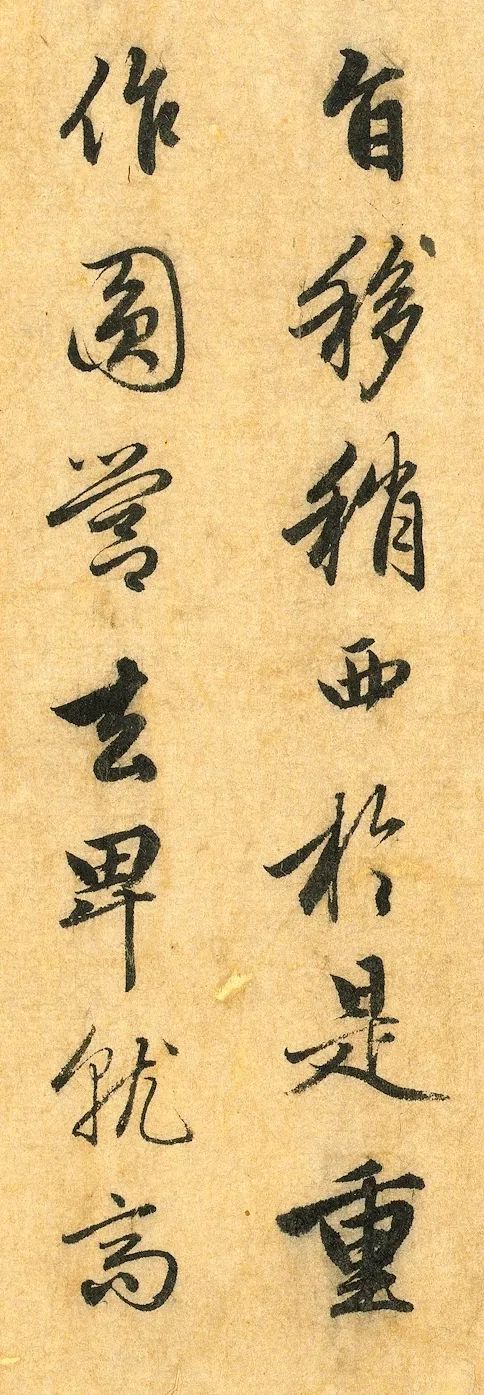 旨移稍西於是重
作圓營去卑就高